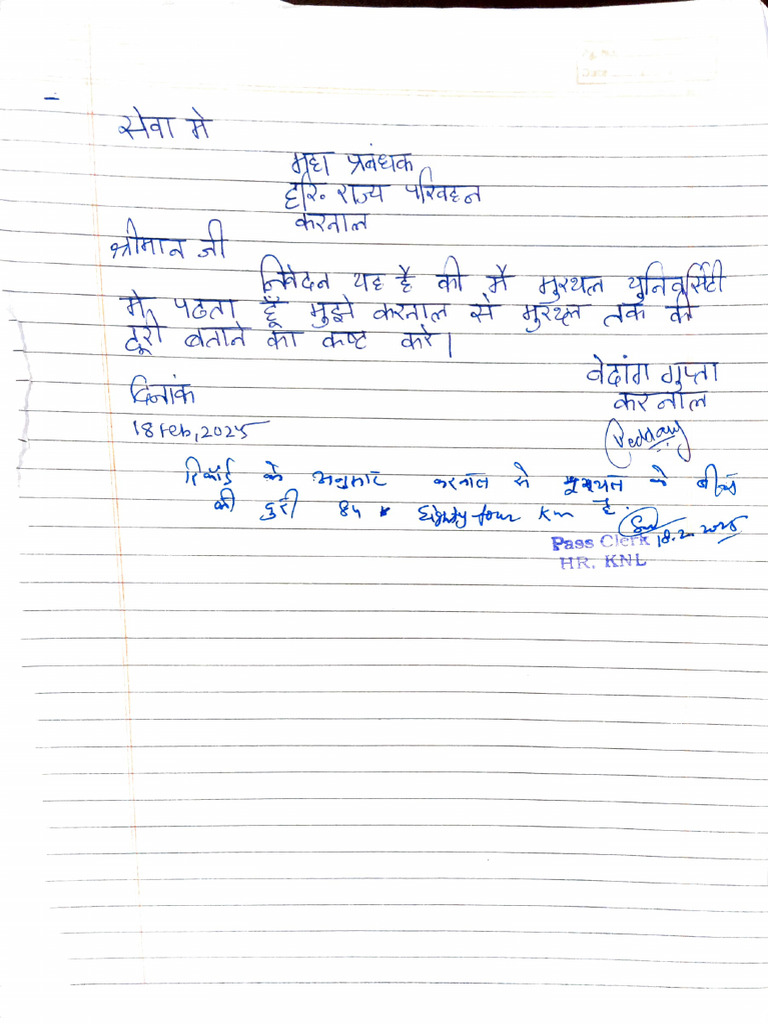 सेवा मे
महा प्रबंधक
हरि. राज्य परिवहन
करनाल
श्रीमान जी
निवेदन यह है की मै मुरथल युनिवर्सिटी
मे पढता हूँ मुझे करनाल से मुरथल तक की
दूरी बताने का कष्ट करे।
वेदांग गुप्ता
दिनांक
करनाल
18 Feb, 2025
रिकॉर्ड के अनुसार करनाल से मुरथल के बीच
की दुरी 84 Eighty four Km है.
18.2.2025
Pass Clerk
HR. KNL